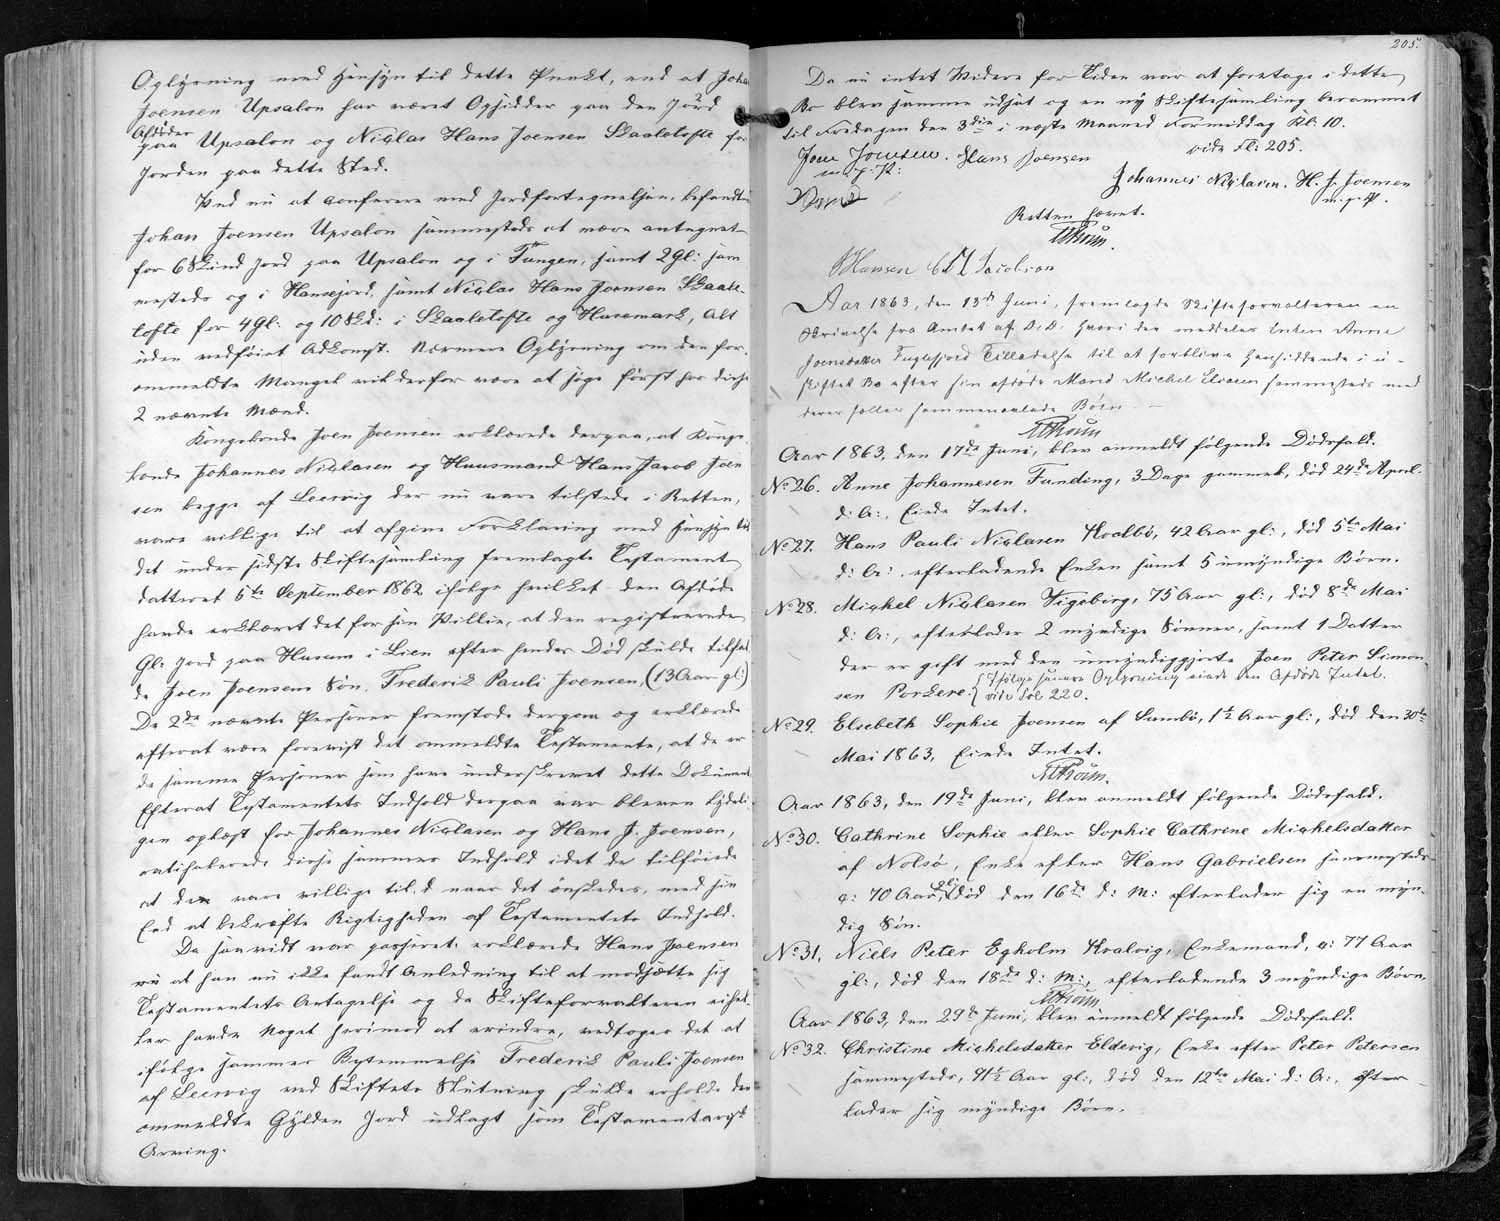 Oplysning med Hensyn til dette Punkt, end at Joha
Joensen Upsalon har været Opsidder paa den Jord
Afdøde
paa Upsalon og Niclas Hans Joensen Skaaletofte for
Jorden paa dette Sted.
Ved nu at conferere med Jordfortegnelsen befandtes
Johan Joensen Upsalon sammesteds at være antegnet
for 6 Skind Jord paa Upsalon og i Tungen, samt 2 Gl: sam
mesteds og i Hansejord, samt Niclas Hans Joensen Skaale-
tofte for 4 Gl: og 10 Skd: i Skaaletofte og Husemark, alt
uden vedføiet Adkomst. Nærmere Oplysning om den for-
ommeldte Mangel vil derfor være at søge først hos disse
2 nævnte Mænd.
Kongsbonde Joen Joensen erklærede derpaa, at Kongs-
bonde Johannes Niclasen og Huusmand Hans Jacob Joen
sen begge af Leervig der nu vare tilstede i Retten,
vare villige til at afgive Forklaring med Hensyn til
det under sidste Skiftesamling fremlagte Testament
datteret 5te September 1862 ifølge hvilket den Afdøde
havde erklæret det for sin Villie, at den registrerede
Gl. Jord paa Husum i Lien efter hendes Død skulde tilfal
de Joen Joensens Søn, Frederik Pauli Joensen, (13 Aar gl:)
De 2de nævnte Personer fremstode derpaa og erklærede
efterat være forevist det ommeldte Testamente, at de er
de samme Personer som have underskrevet dette Dokument
Efterat Testamentets Indhold derpaa var bleven tydeli
gen oplæst for Johannes Niclasen og Hans J. Joensen,
ratihaberede disse sammes Indhold idet de tilføiede
at de vare villige til, naar det ønskedes, med sin
Eed at bekræfte Rigtigheden af Testamentets Indhold.
Da saavidt var passeret erklærede Hans Joensen
nu at han nu ikke fandt Anledning til at modsætte sig
Testamentets Antagelse og da Skifteforvalteren eihel-
ler havde Noget herimod at erindre, vedtoges det at
ifølge sammes Bestemmelse Frederik Pauli Joensen
af Leervig ved Skiftets Slutning skulde erholde den
ommeldte Gylden Jord udlagt som Testamentarisk
Arving.
205.
Da nu intet Videre for Tiden var at foretage i dette
Bo blev samme udsat og en ny Skiftesamling berammet
til Fredagen den 3die i næste Maaned Formiddag Kl: 10.
vide Fl: 205.
Joen Joensen. Hans Joensen
m. p. P:
Johannes Niclasen. H. J. Joensen
m. p. P.
Retten hævet.
HTholm.
PHansen C M Jacobsen
Aar 1863, den 13de Juni, fremlagde Skifteforvalteren en
Skrivelse fra Amtet af D. D: hvori der meddeles Enken Anne
Joensdatter Fuglefjord Tilladelse til at forblive hensiddende i u-
skiftet Bo efter sin afdøde Mand Michel Eliasen sammesteds med
deres fælles sammenavlede Børn. —
Aar 1863, den 17de Juni, blev anmeldt følgende Dødsfald.
No 26. Anne Johannesen Funding, 3 Dage gammel, død 24de April
d: A:, Eiede Intet.
No 27. Hans Pauli Niclasen Hvalbø, 42 Aar gl:, død 5te Mai
d: A:, efterladende Enken samt 5 umyndige Børn.
No 28. Michel Niclasen Vigebirg, 75 Aar gl:, død 8de Mai
d: A:, efterlader 2 myndige Sønner, samt 1 Datter
der er gift med den umyndiggjorte Joen Peter Simon-
sen Porkere. {Ifølge senere Oplysning eiede den Afdøde Intet.
vide Fol 220.
No 29. Elsebeth Sophie Joensen af Sumbø, 1½ Aar gl:, død den 30te
Mai 1863, Eiede Intet.
Aar 1863, den 19de Juni, blev anmeldt følgende Dødsfald.
No 30. Cathrine Sophie eller Sophie Cathrine Michelsdatter
af Nolsø, Enke efter Hans Gabrielsen sammesteds
a: 70 Aar gl: død den 16de d: M: efterlader sig en myn
dig Søn.
No 31. Niels Peter Egholm Kvalvig, Enkemand, a: 77 Aar
gl:, død den 18de d: M:, efterladende 3 myndige Børn.
Aar 1863, den 29de Juni, blev anmeldt følgende Dødsfald.
No 32. Christine Michelsdatter Eldevig, Enke efter Peter Petersen
sammesteds, 91½ Aar gl:, død den 12te Mai d: A:, efter
lader sig myndige Børn.